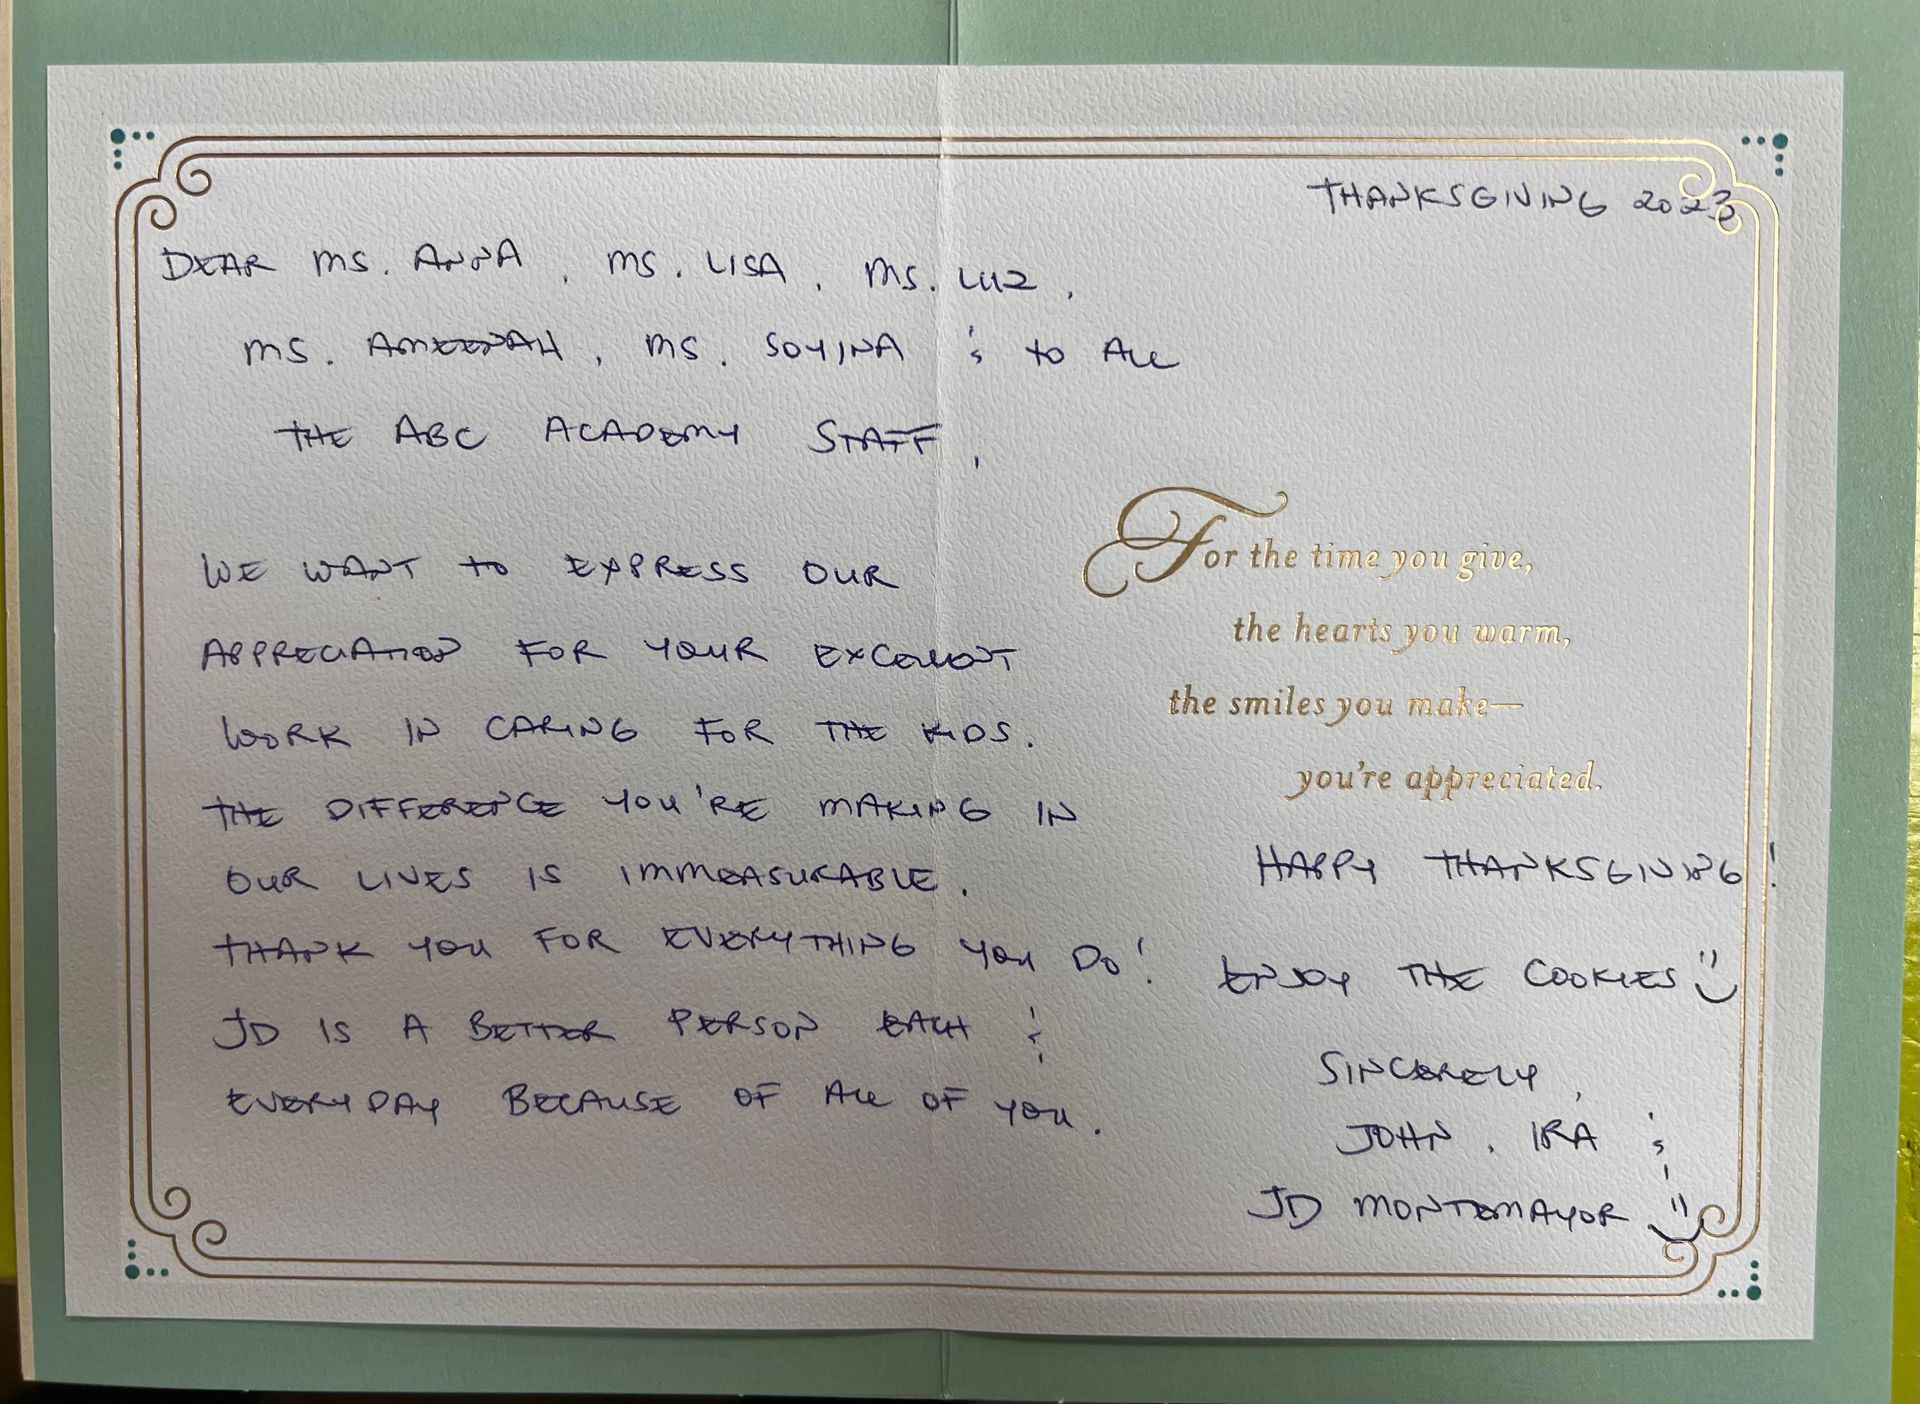 THANKSGIVING 2023
DEAR MS. ANNA, MS. LISA, MS. LUZ,
MS. AMEENAH, MS. SOYINA & TO ALL
THE ABC ACADEMY STAFF,
WE WANT TO EXPRESS OUR
APPRECIATION FOR YOUR EXCELLENT
WORK IN CARING FOR THE KIDS.
THE DIFFERENCE YOU'RE MAKING IN
OUR LIVES IS IMMEASURABLE.
THANK YOU FOR EVERYTHING YOU DO!
JD IS A BETTER PERSON EACH &
EVERYDAY BECAUSE OF ALL OF YOU.
For the time you give,
the hearts you warm,
the smiles you make—
you're appreciated.
HAPPY THANKSGIVING!
ENJOY THE COOKIES
SINCERELY,
JOHN, IRA &
JD MONTEMAYOR